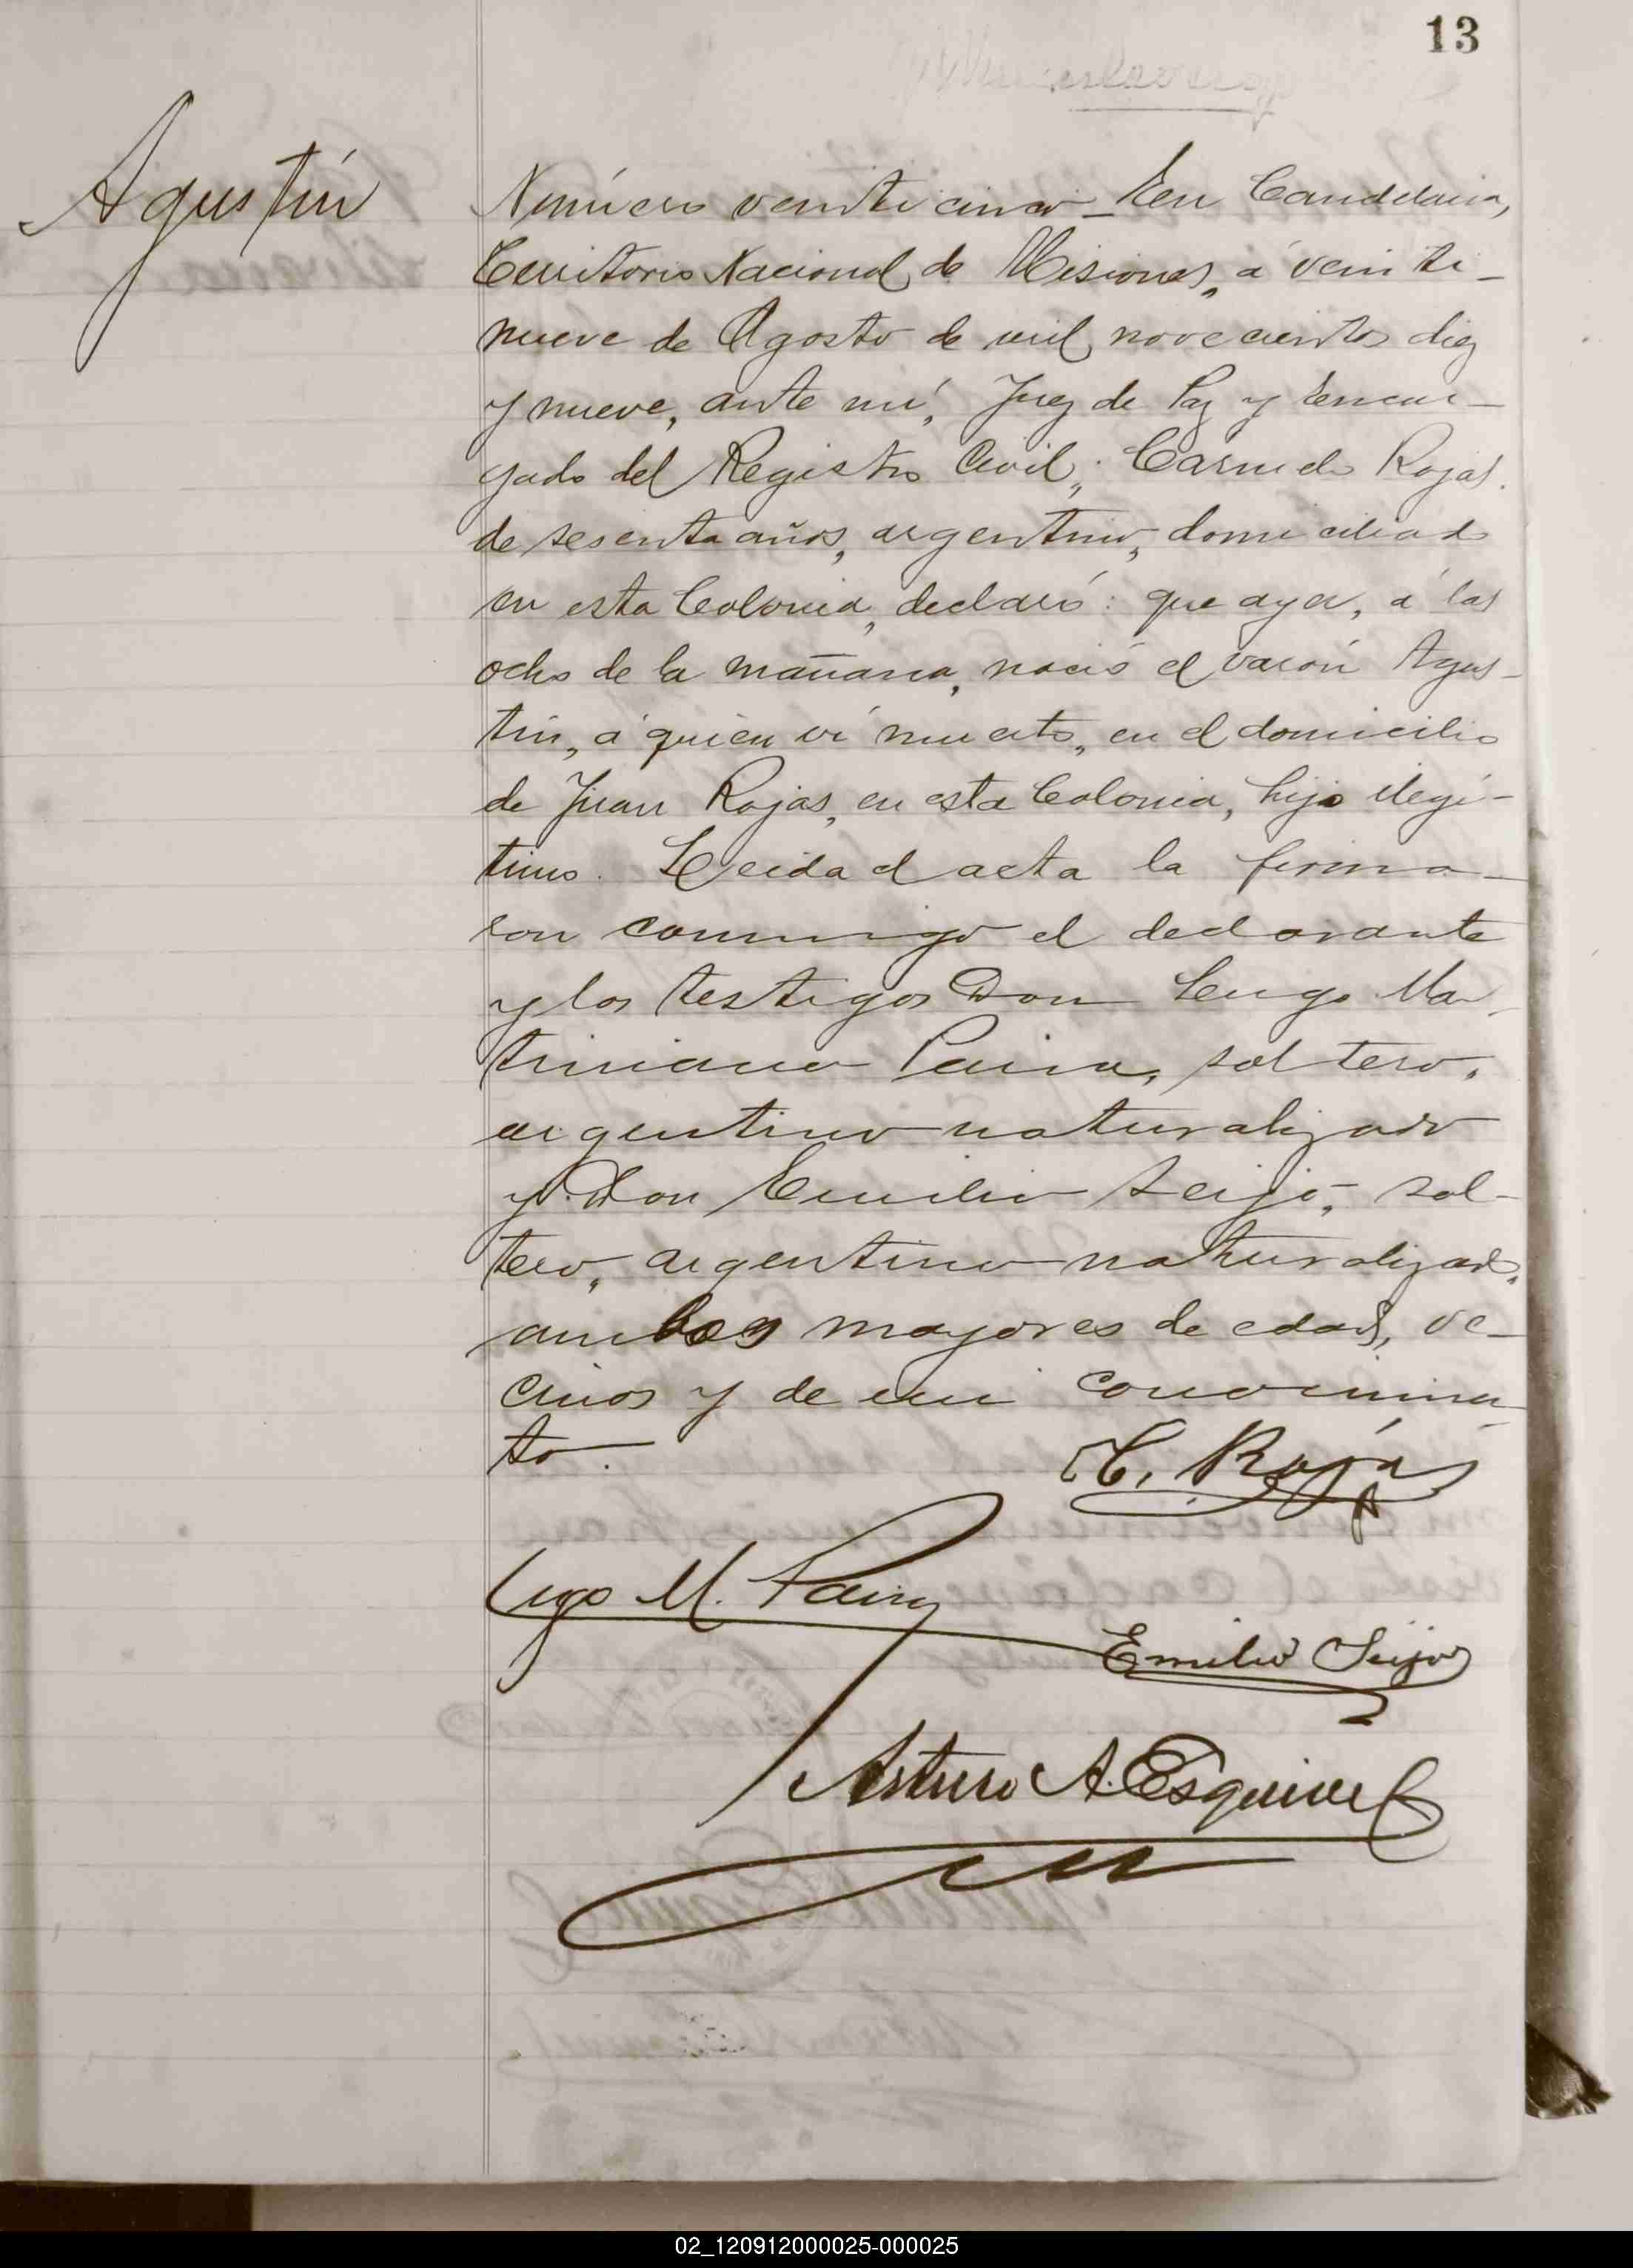 13
Agustín
Número veinticinco – En Candelaria,
Territorio Nacional de Misiones, á veinti-
nueve de Agosto de mil novecientos diez
y nueve, ante mí, Juez de Paz y Encar-
gado del Registro Civil, Carmelo Rojas.
de sesenta años, argentino, domiciliado
en esta Colonia, declaró: que ayer, á las
ocho de la mañana, nació el varón Agus-
tín, á quien ví muerto, en el domicilio
de Juan Rojas, en esta Colonia, hijo ilegí-
timo. Leida el acta la firma-
ron conmigo el declarante
y los testigos Don Mar-
tiniano soltero,
argentino naturalizado
y Don Emilio Seijo, sol-
tero, argentino naturalizado,
ambos mayores de edad, ve-
cinos y de mi conocimien-
to.
C. Rojas
M.
Emilio Seijo
Arturo A. Esquivel
02_120912000025-000025